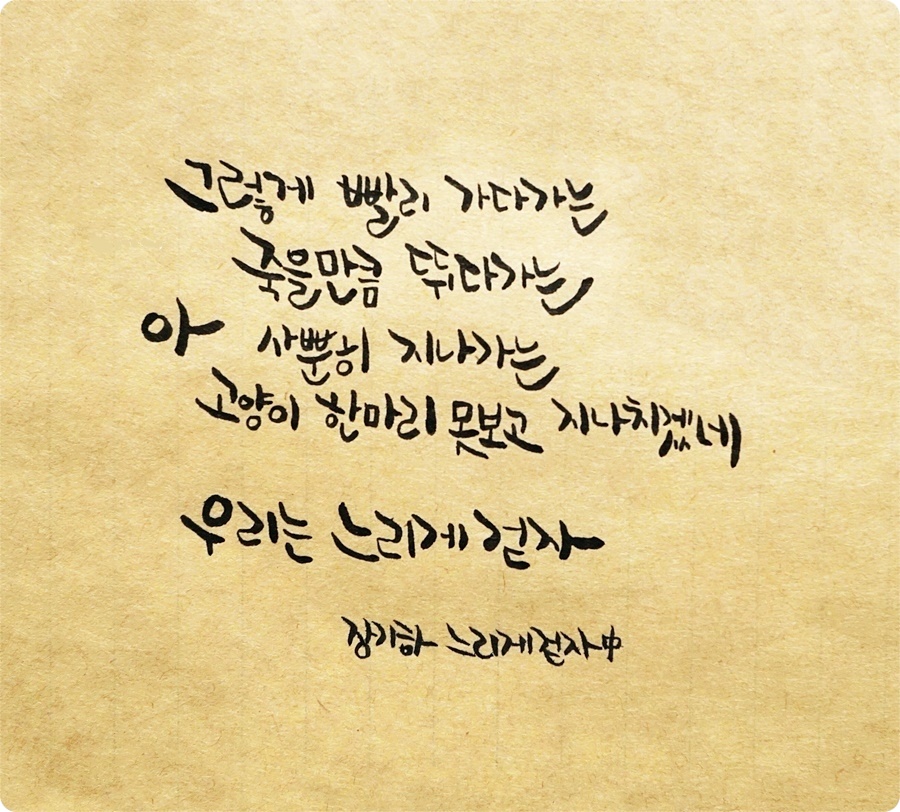 그렇게 빨리 가다가는
죽을만큼 뛰다가는
아 사뿐히 지나가는
고양이 한마리 못보고 지나치겠네
우리는 느리게 걷자
장기하 느리게걷자中